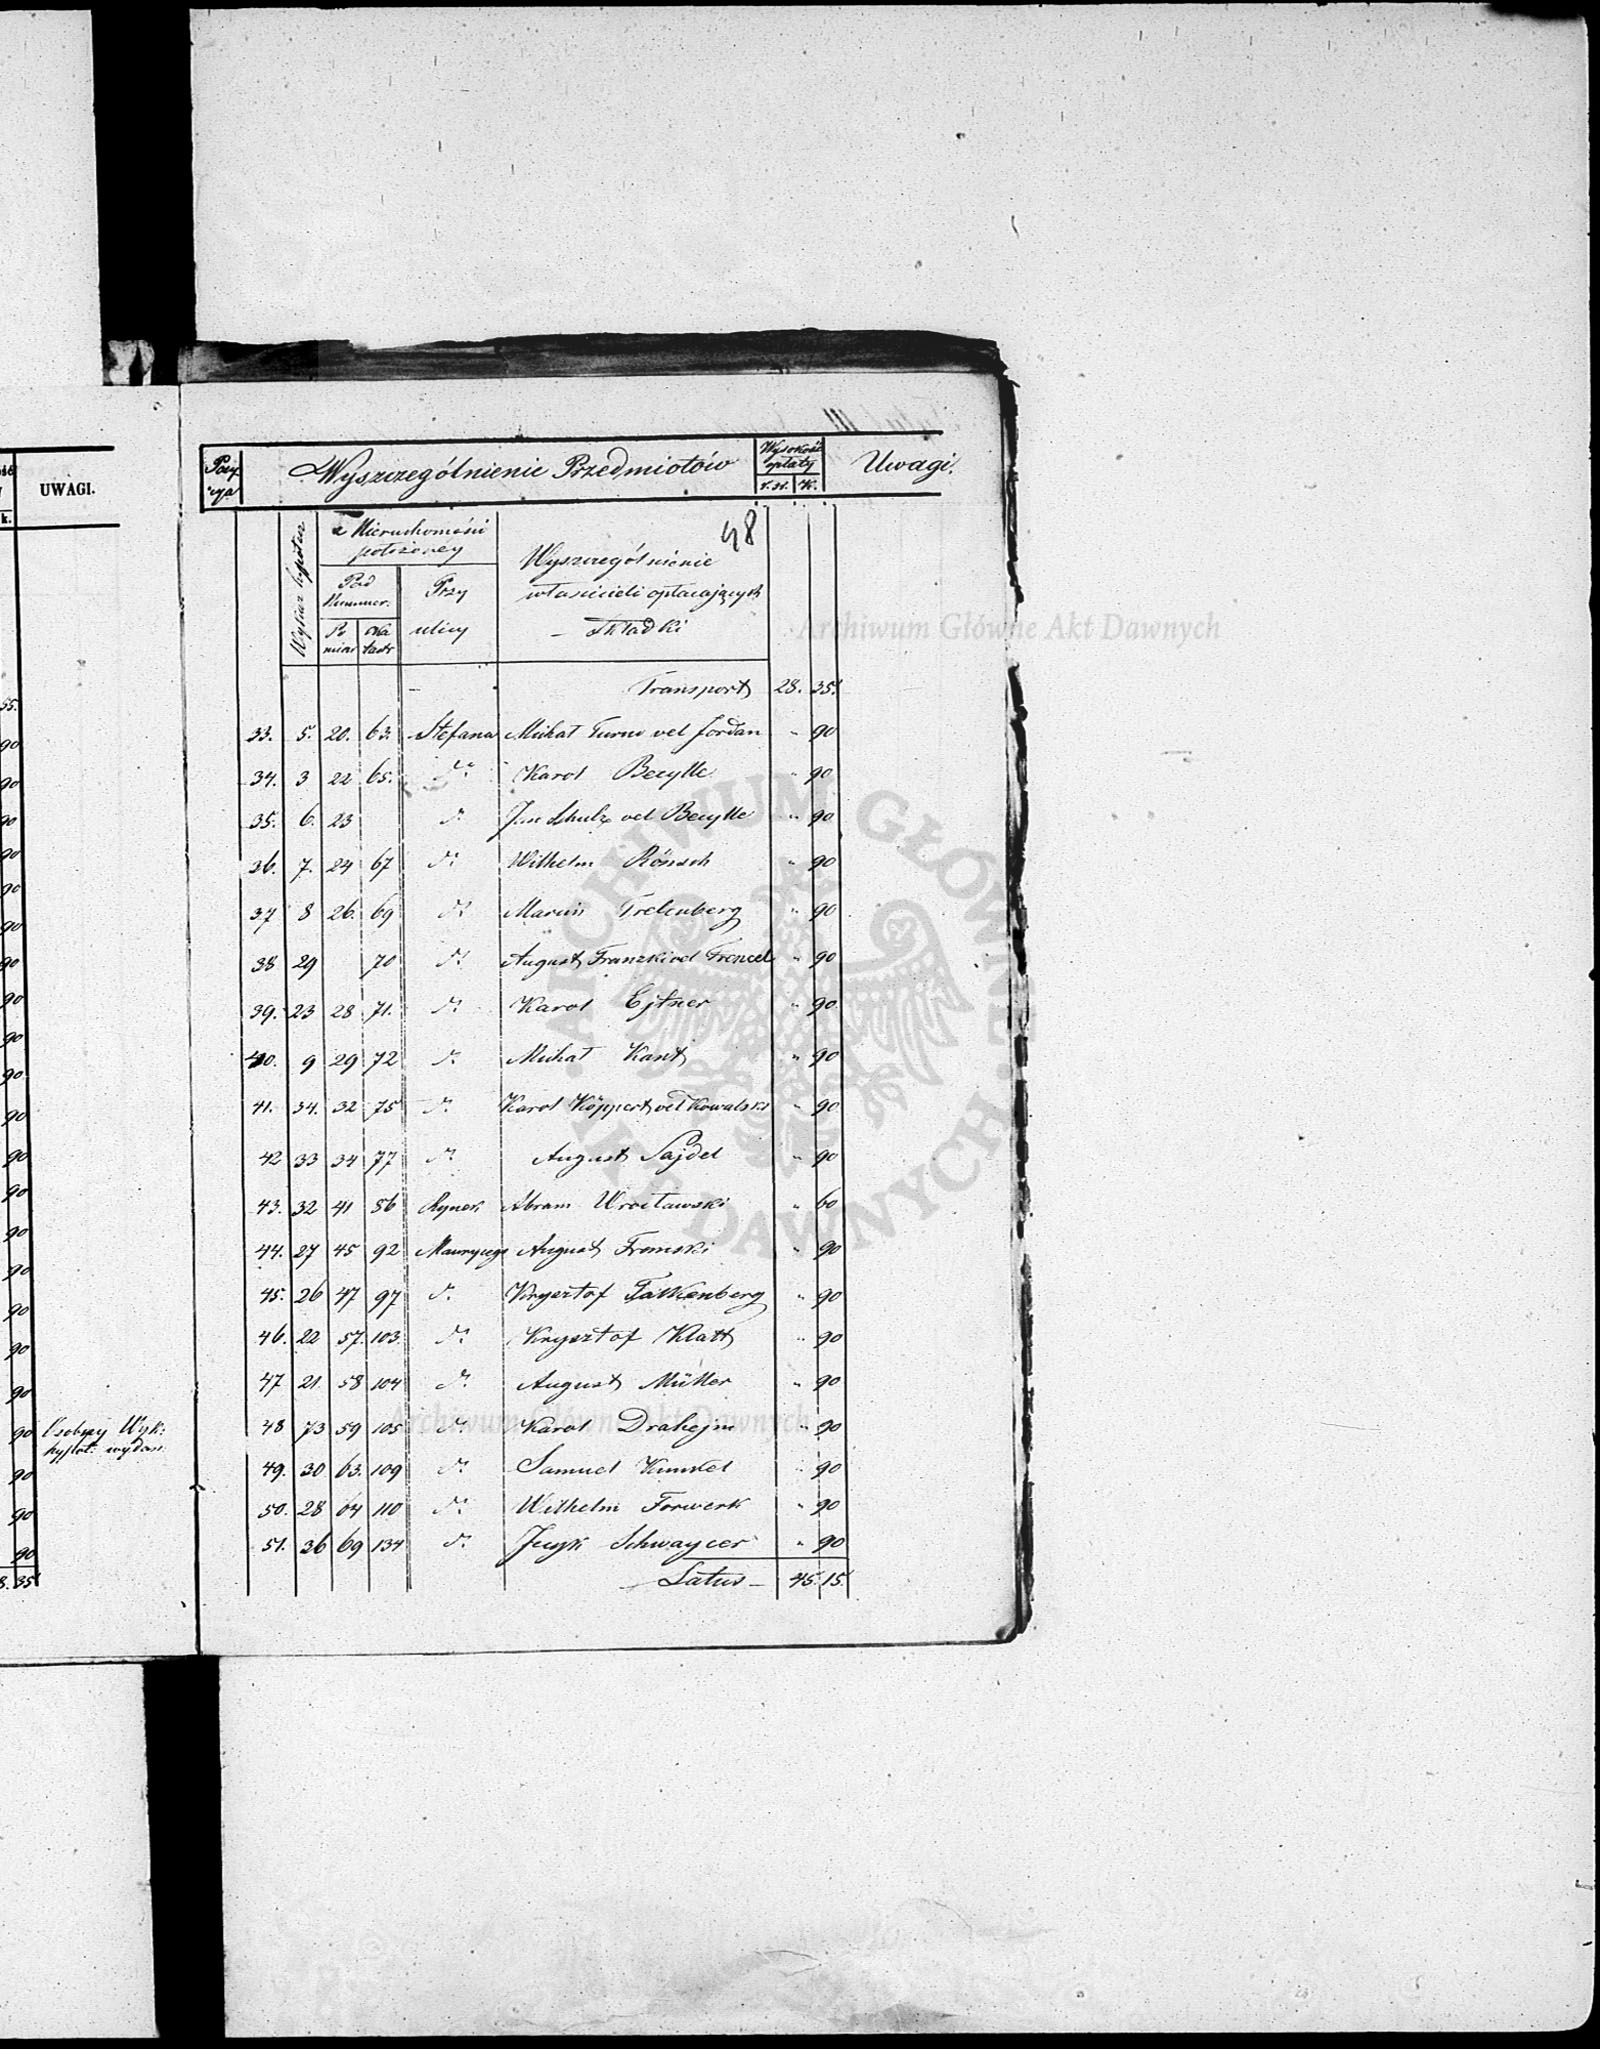 UWAGI.
k.
35.
90
90
90
90
90
90
90
90
90
90
90
90
90
90
90
90
90
90
90 Osobny Wyk:
hypot: wydan:
90
90
90
8. 35
Pozy
cya
Wyszczególnienie Przedmiotów
Wysokość
opłaty
r. sr. K.
Uwagi.
48
Wykaz hypotecz
z Nieruchomości
położoney
Pod
Nummer.
Po
miar
Ka
tastr
Przy
ulicy
Wyszczególnienie
właścicieli opłacających
Składki
Transport 28. 35.
33. 5. 20. 63. Stefana Michał Turno vel Jordan " 90
34. 3 22 65. do Karol Becylle " 90
35. 6. 23 do Jan Schulz vel Becylle " 90
36. 7. 24 67 do Wilhelm Rönsch " 90
37 8 26. 69 do Marcin Trelenberg " 90
38 29 70 do August Franzki vel Frencel " 90
39. 23 28 71. do Karol Ejtner " 90
40. 9 29 72 do Michał Kant " 90
41. 34. 32 75 do Karol Köppert vel Kowalski " 90
42 33 34 77 do August Sajdel " 90
43. 32 41 56 Rynek Abram Wrocławski " 60
44. 27 45 92 Maurycego August Fremski " 90
45. 26 47 97 do Krysztof Falkenberg " 90
46. 22 57. 103. do Krysztof Klatt " 90
47 21 58 104 do August Müller " 90
48 73 59 105 do Karol Drahejm " 90
49. 30 63. 109 do Samuel Kunkel " 90
50. 28 64 110 do Wilhelm Forwerk " 90
51. 36 69 134 do Schwaycer " 90
Latus 45. 15.
Archiwum Główne Akt Dawnych
ARCHIWUM GŁÓWNE AKT DAWNYCH
Archiwum Główne Akt Dawnych